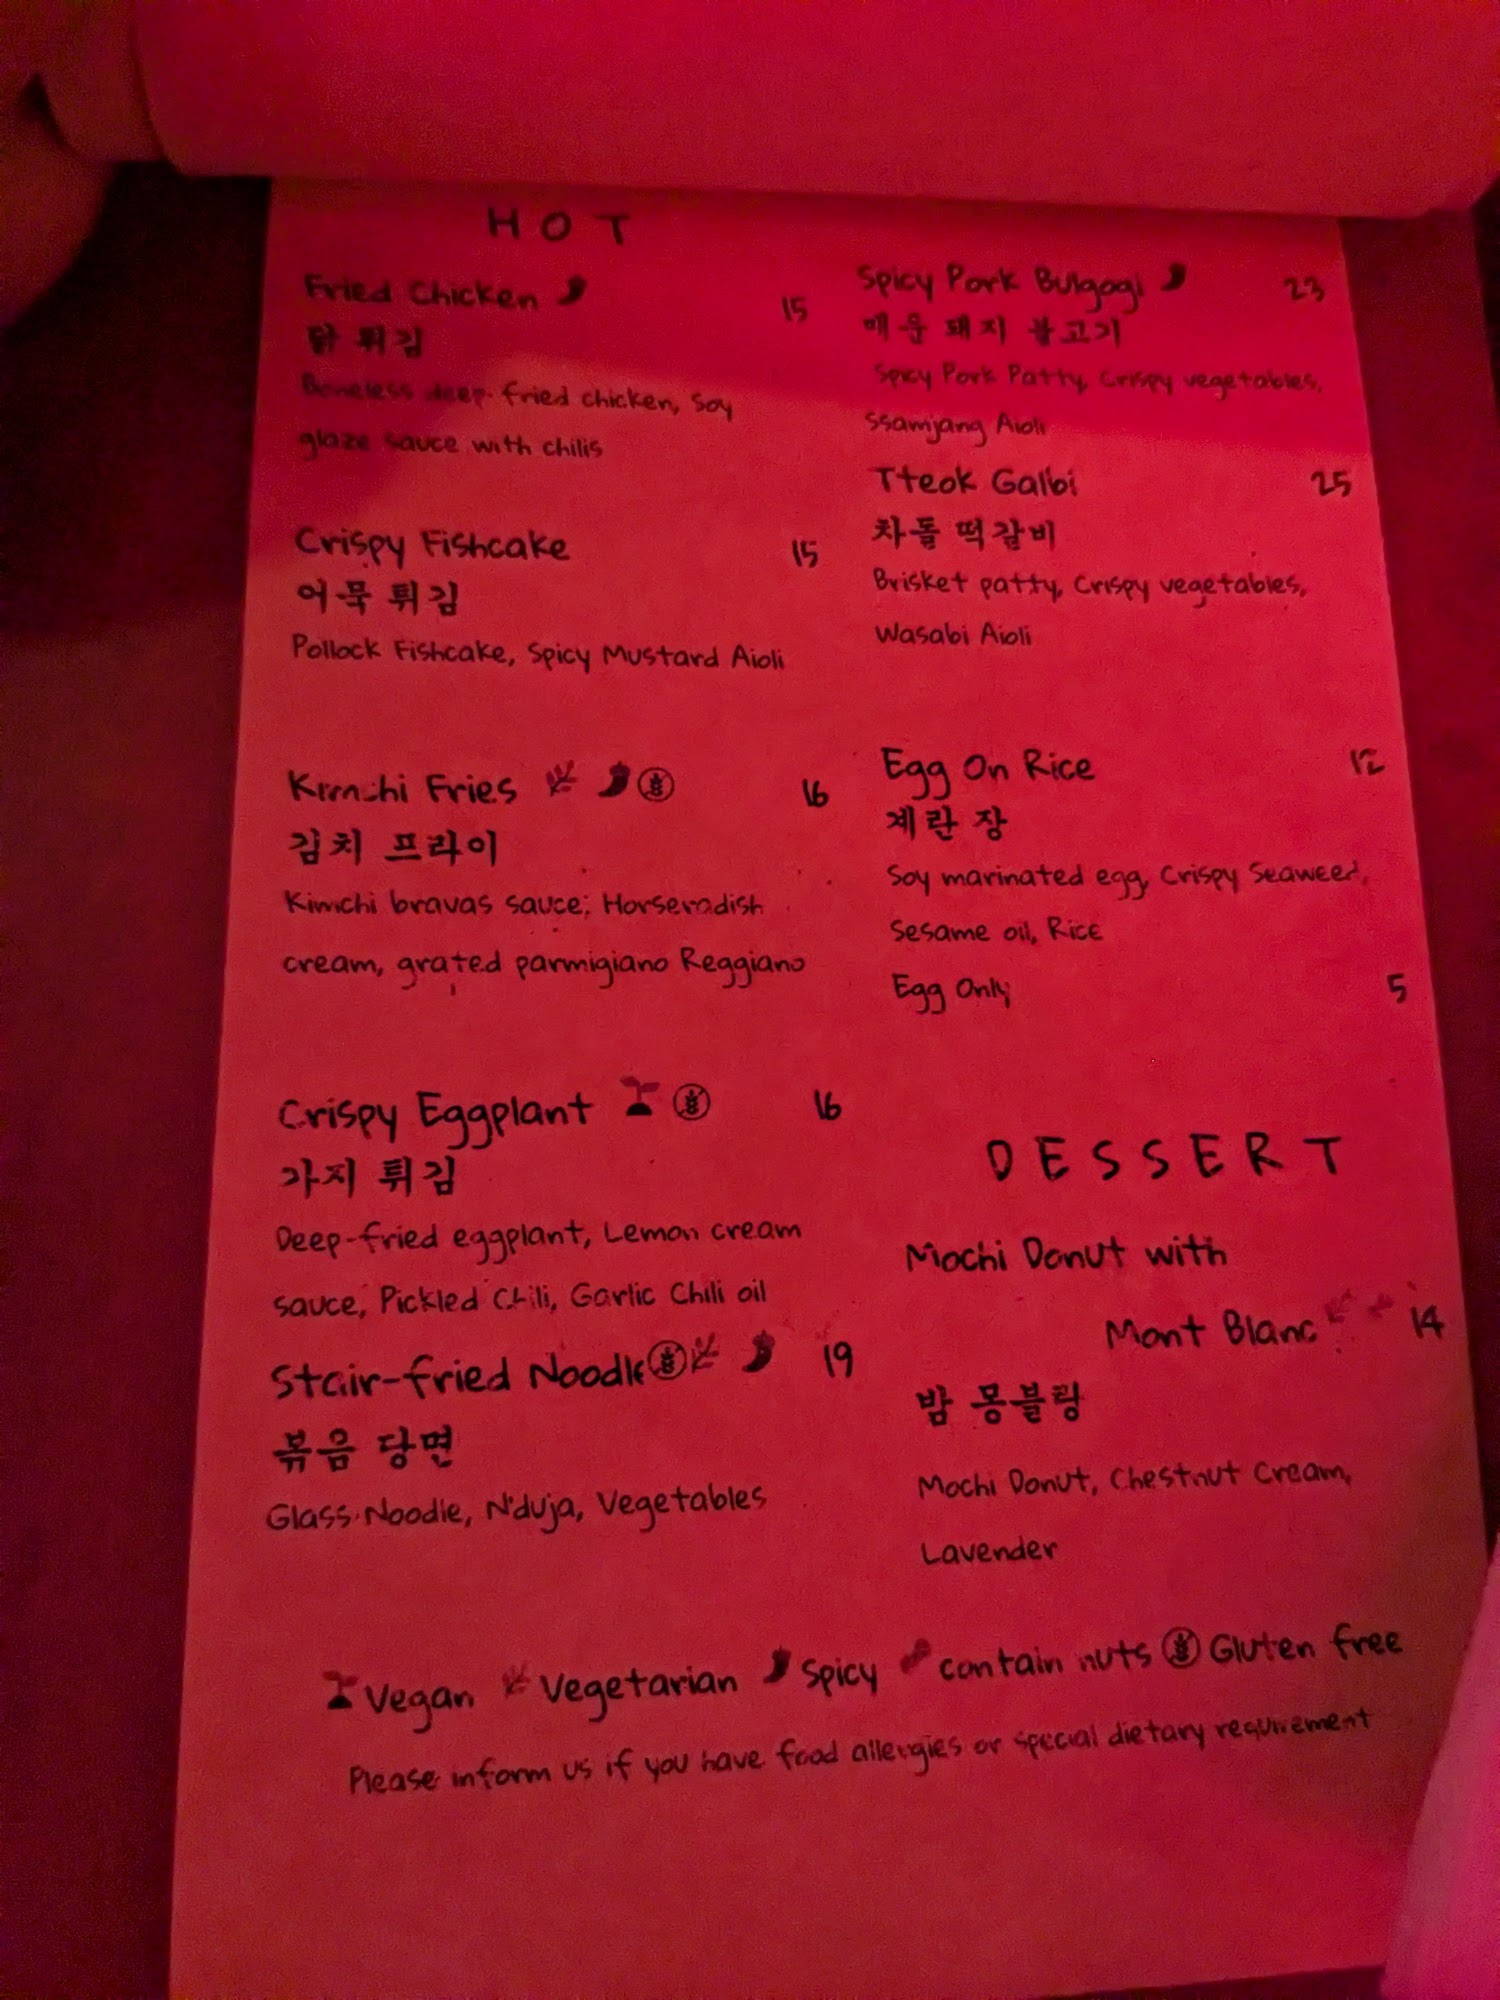 HOT
Fried Chicken 15
닭 튀김
Boneless deep-fried chicken, Soy
glaze sauce with chilis
Crispy Fishcake 15
어묵 튀김
Pollock Fishcake, Spicy Mustard Aioli
Kimchi Fries 16
김치 프라이
Kimchi bravas sauce, Horseradish
cream, grated parmigiano Reggiano
Crispy Eggplant 16
가지 튀김
Deep-fried eggplant, Lemon cream
sauce, Pickled Chili, Garlic Chili oil
Stair-fried Noodle 19
볶음 당면
Glass Noodle, N'duja, Vegetables
Spicy Pork Bulgogi 23
매운 돼지 불고기
Spicy Pork Patty, Crispy vegetables,
Ssamjang Aioli
Tteok Galbi 25
차돌 떡갈비
Brisket patty, Crispy vegetables,
Wasabi Aioli
Egg On Rice 12
계란 장
Soy marinated egg, Crispy Seaweed,
Sesame oil, Rice
Egg Only 5
DESSERT
Mochi Donut with
Mont Blanc 14
밤 몽블랑
Mochi Donut, Chestnut Cream,
Lavender
Vegan Vegetarian Spicy contain nuts Gluten free
Please inform us if you have food allergies or special dietary requirement